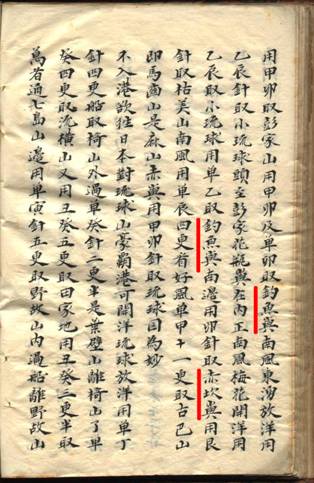 用甲卯取彭家山用甲卯及單卯取釣魚嶼南風東湧放洋用
乙辰針取小琉球頭至彭家花瓶嶼在內正南風梅花開洋用
乙辰取小琉球用單乙取釣魚嶼南邊用卯針取赤坎嶼用艮
針取枯美山南風用單辰四更看好風單甲十一更取古巴山
即馬齒山是麻山赤嶼用甲卯針取琉球国為妙
不入港欲往日本對琉球山豪霸港可開洋琉球放洋用單丁
針四更船取椅山外過單癸針二更半是葉壁山離椅山了單
癸四更取流橫山又用丑癸五更取田家地用丑癸三更半取
萬者通七島山邊用單寅針五更取野故山內過船離野故山